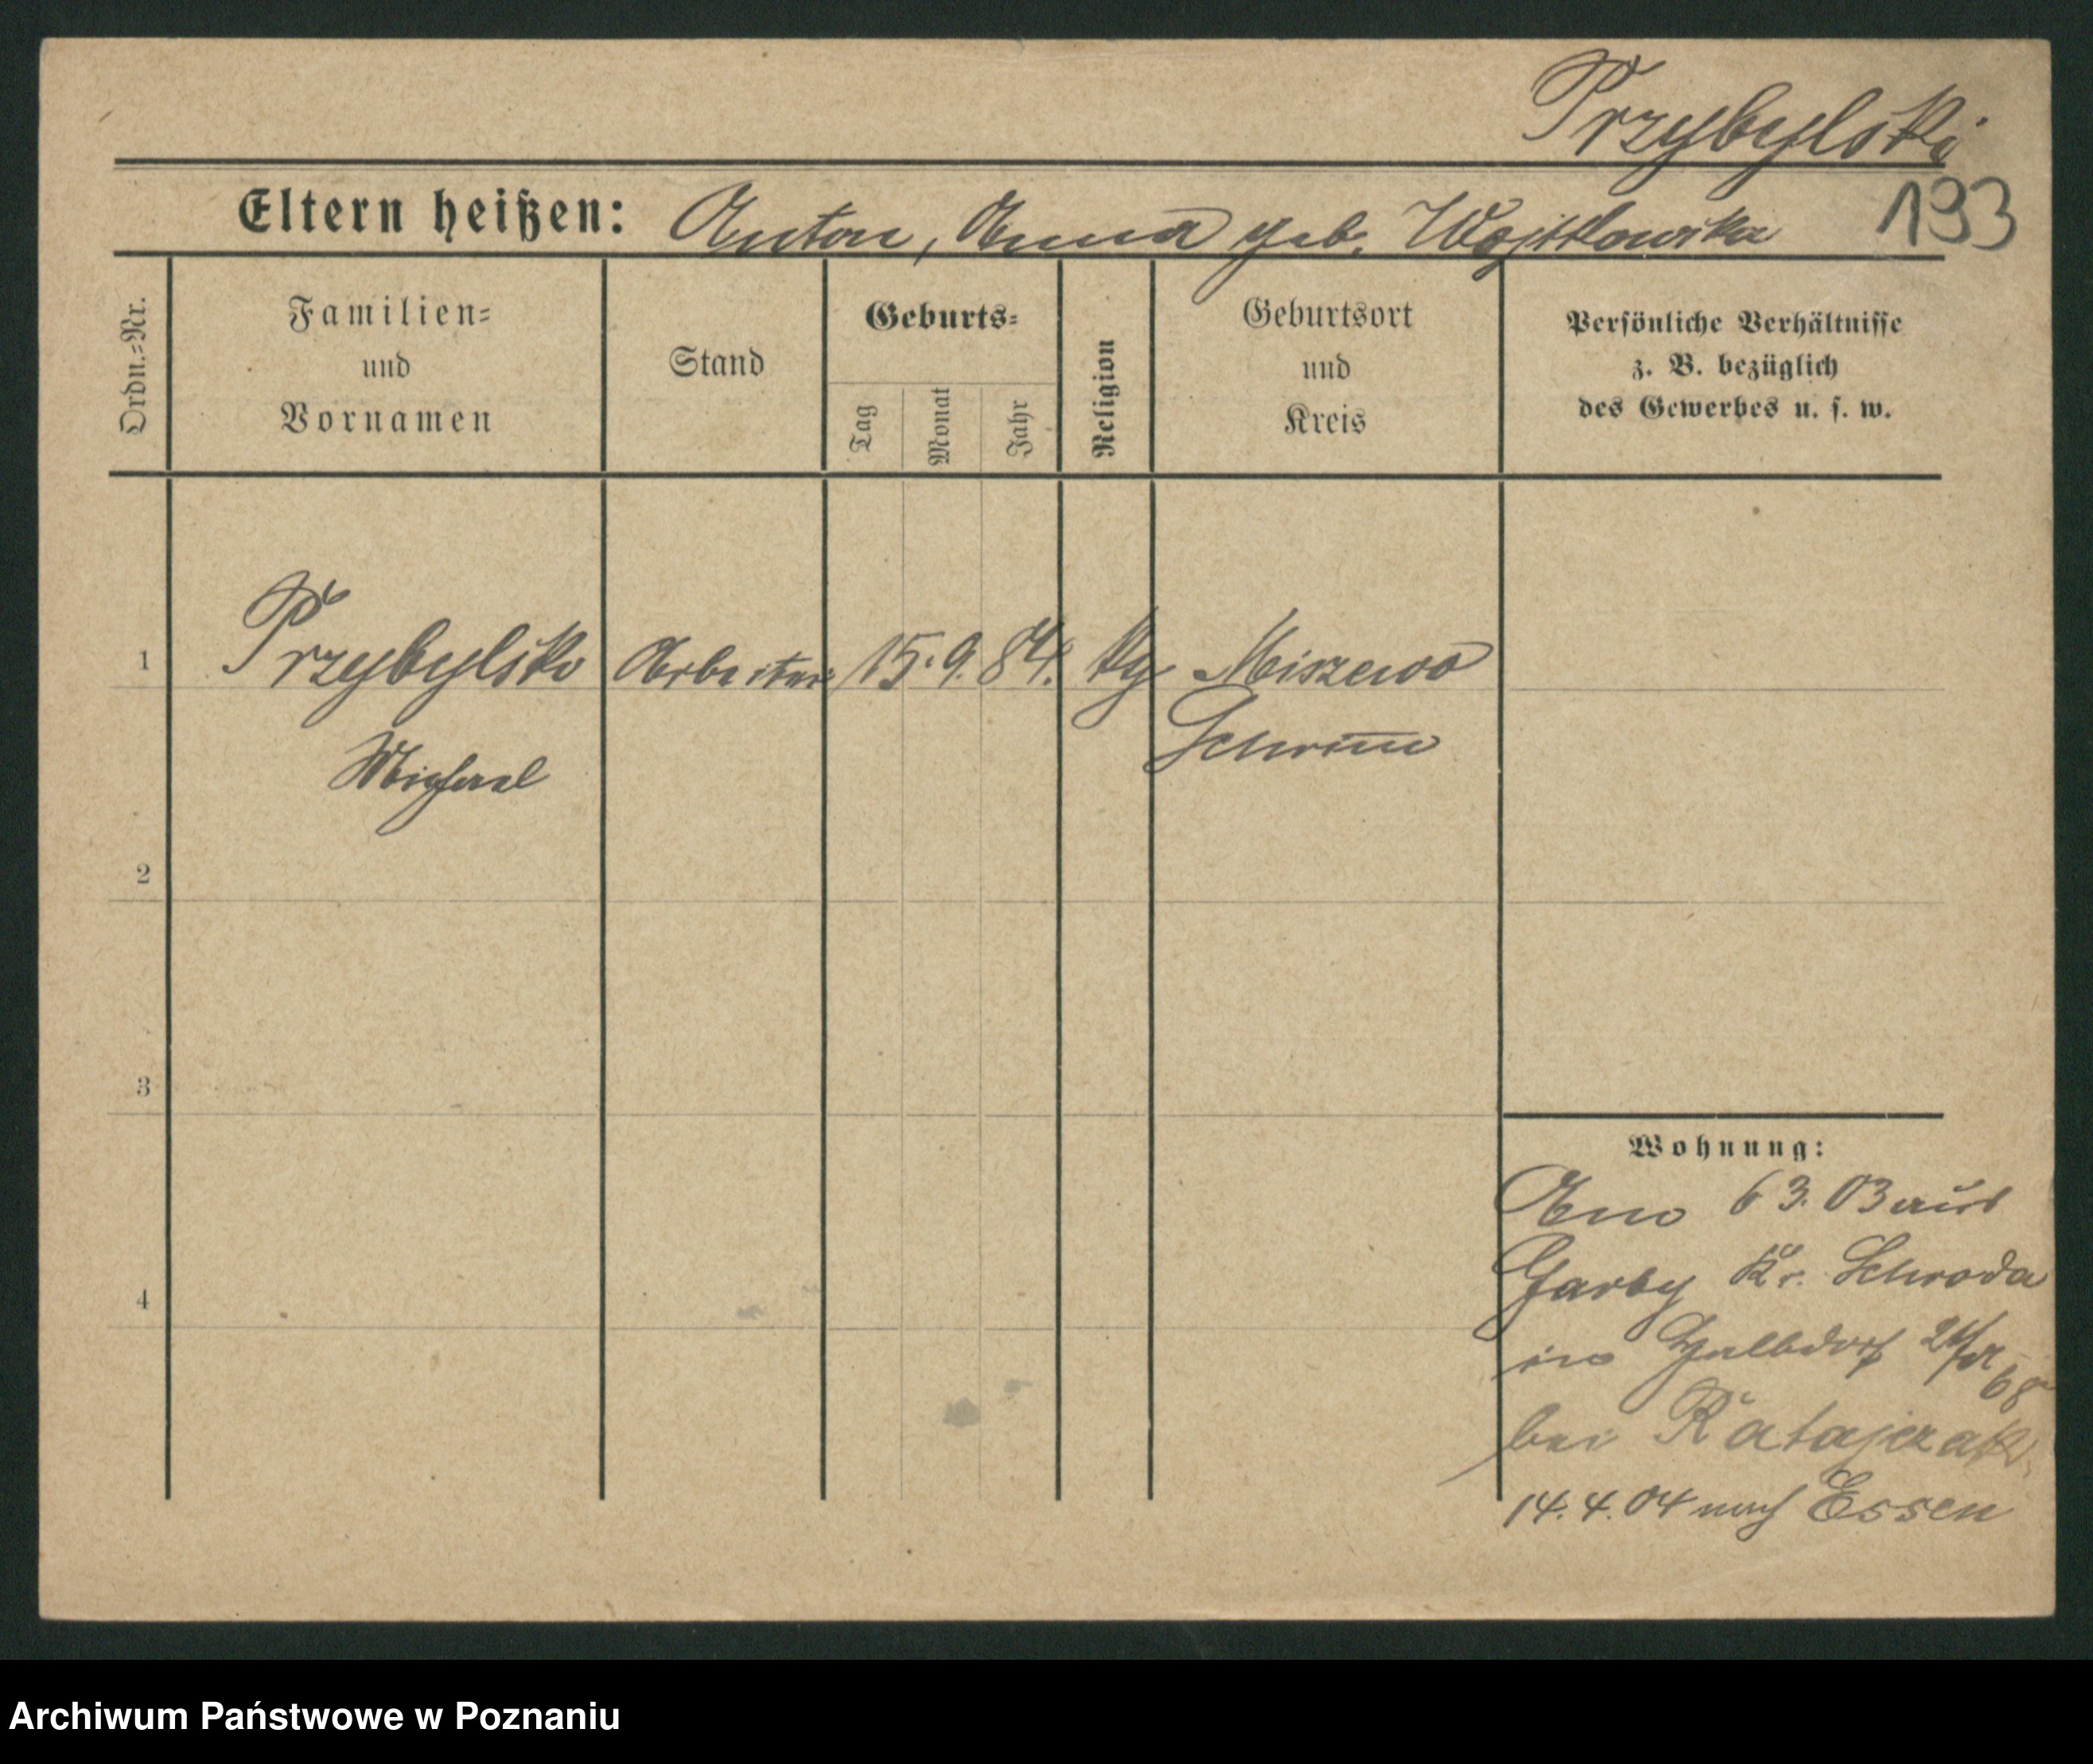 Przybylski
Eltern heißen: Anton, Anna geb. Wojtkowska 193
Ordn.=Nr.
Familien=
und
Vornamen
Stand
Geburts=
Tag
Monat
Jahr
Religion
Geburtsort
und
Kreis
Persönliche Verhältnisse
z. B. bezüglich
des Gewerbes u. s. w.
1 Przybylski Arbeiter 15. 9. 84. Miszewo
Schrim
Michael
2
3
4
Wohnung:
6 3. 03 aus
Garby Kr. Schroda
in
bei Ratajczak
14. 4. 04 nach Essen
Archiwum Państwowe w Poznaniu